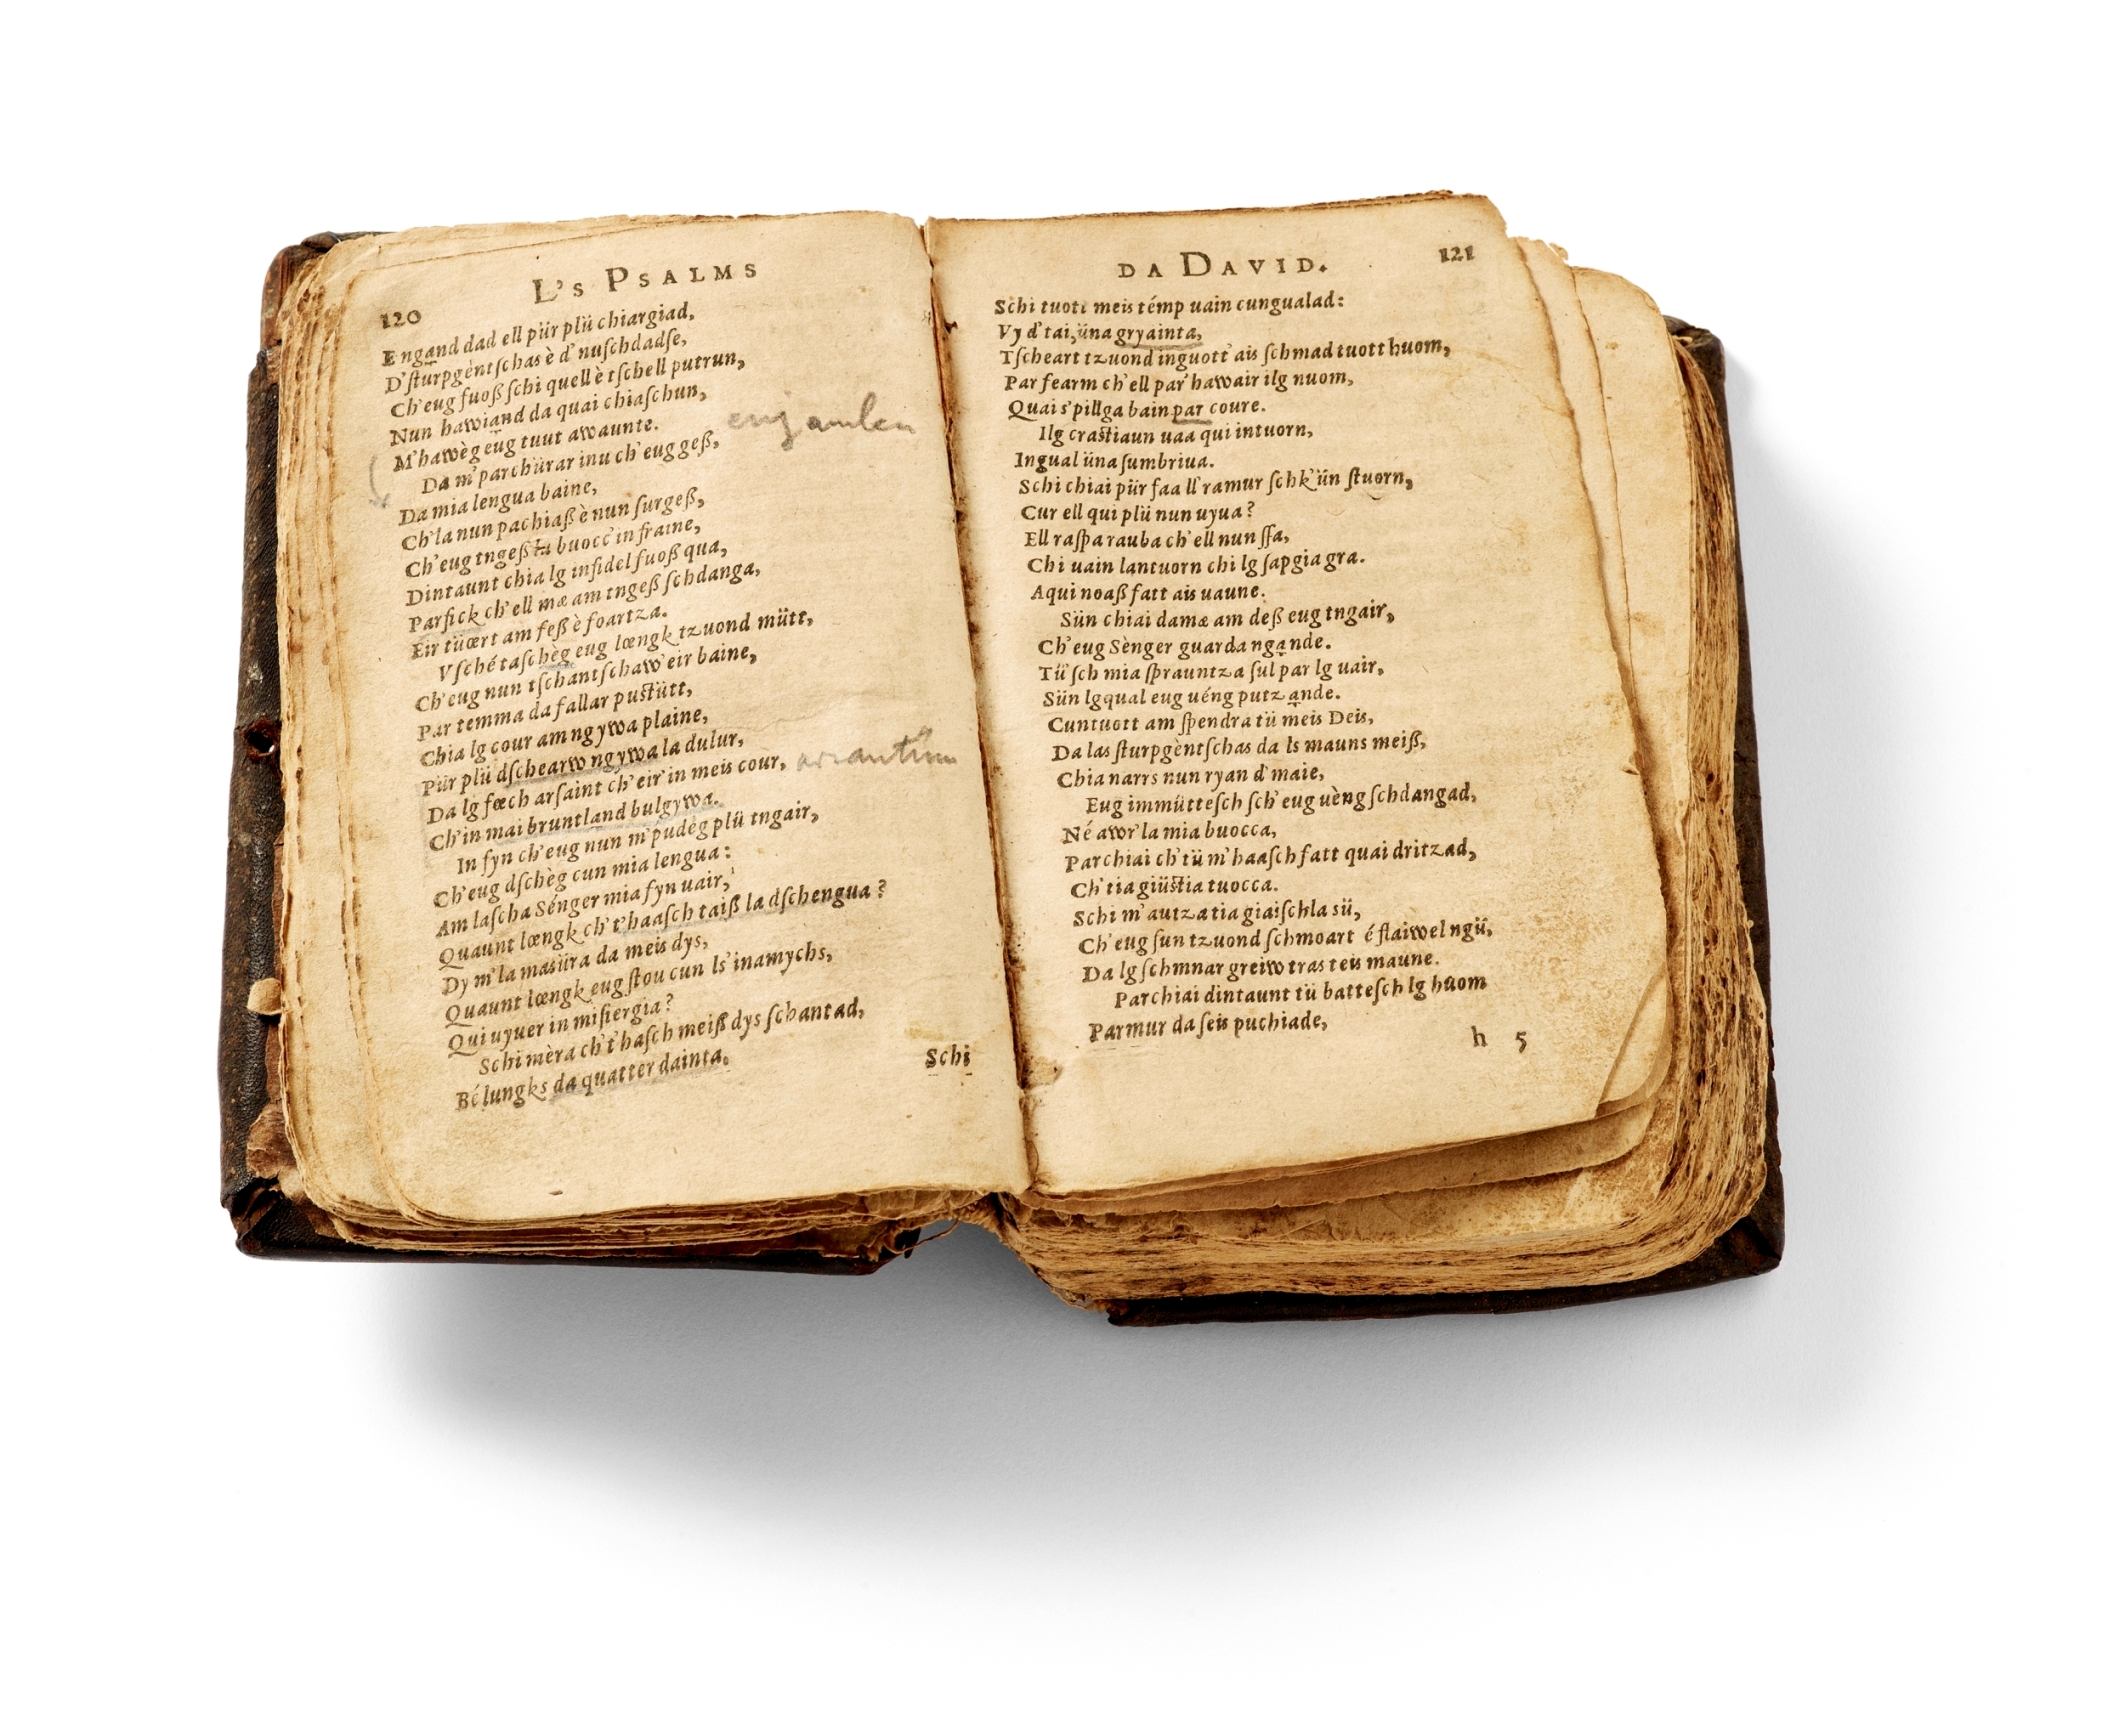 120
L's PSALMS
Engand dad ell pür plü chiargiad,
D'ſturpgèntſchas è d'nuſchdadſe,
Ch'eug fuoß ſchi quell è tſchell putrun,
Nun hawiand da quai chiaſchun,
M'hawèg eug tuut awaunte.
Da m'parchürar inu ch'eug geß,
Da mia lengua baine,
Ch'la nun pachiaß è nun ſurgeß,
Ch'eug tngeß la buocc' in fraine,
Dintaunt chia lg infidel fuoß qua,
Parfick ch'ell mæ am tngeß ſchdanga,
Eir tüœrt am feß è foartza.
Vſché taſchèg eug lœngk tzuond mütt,
Ch'eug nun tſchantſchaw' eir baine,
Par temma da fallar puſtütt,
Chia lg cour am ngywa plaine,
Pür plü dſchearw ngywa la dulur,
Da lg fœch arſaint ch'eir in meis cour,
Ch'in mai bruntland bulgywa.
In fyn ch'eug nun m'pudèg plü tngair,
Ch'eug dſchèg cun mia lengua:
Am laſcha Sénger mia fyn uair,
Quaunt lœngk ch't'haaſch taiß la dſchengua?
Dy m'la maſüra da meis dys,
Quaunt lœngk eug ſtou cun ls'inamychs,
Qui uyuer in miſiergia?
Schi mèra ch't'haſch meiß dys ſchantad,
Bé lungks da quatter dainta.
Schi
DA DAVID.
121
Schi tuott meis témp uain cungualad:
Vy d'tai, üna gryainta,
Tſcheart tzuond inguott' ais ſchmad tuott huom,
Par fearm ch'ell par' hawair ilg nuom,
Quai s'pillga bain par coure.
Ilg craſtiaun uaa qui intuorn,
Ingual üna ſumbriua.
Schi chiai pür faa ll'ramur ſchk'ün ſtuorn,
Cur ell qui plü nun uyua?
Ell raſpa rauba ch'ell nun ſſa,
Chi uain lantuorn chi lg ſapgia gra.
Aqui noaß fatt ais uaune.
Sün chiai damæ am deß eug tngair,
Ch'eug Sènger guarda ngande.
Tü'ſch mia ſprauntza ſul par lg uair,
Sün lgqual eug uéng putzande.
Cuntuott am ſpendra tü meis Deis,
Da las ſturpgèntſchas da ls mauns meiß,
Chia narrs nun ryan d'maie,
Eug immütteſch ſch'eug uèng ſchdangad,
Né awr'la mia buocca,
Parchiai ch'tü m'haaſch fatt quai dritzad,
Ch'tia giüſtia tuocca.
Schi m'autza tia giaiſchla sü,
Ch'eug ſun tzuond ſchmoart é flaiwel ngü,
Da lg ſchmnar greiw tras teis maune.
Parchiai dintaunt tü batteſch lg huom
Parmur da ſeis puchiade,
h 5